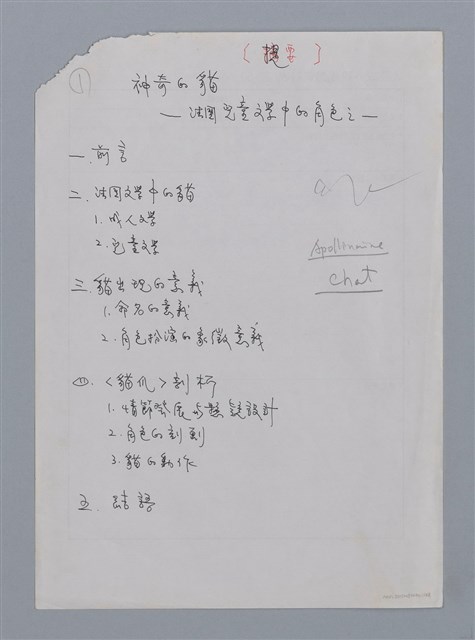 〔提要〕
①
神奇的貓
—法國兒童文學中的角色之一
一.前言
二.法國文學中的貓
1.成人文學
2.兒童文學
三.貓出現的意義
1.命名的意義
2.角色扮演的象徵意義
四.〈貓爪〉剖析
1.情節發展与懸疑設計
2.角色的刻劃
3.貓的動作
五.結語
Apollinaire
chat